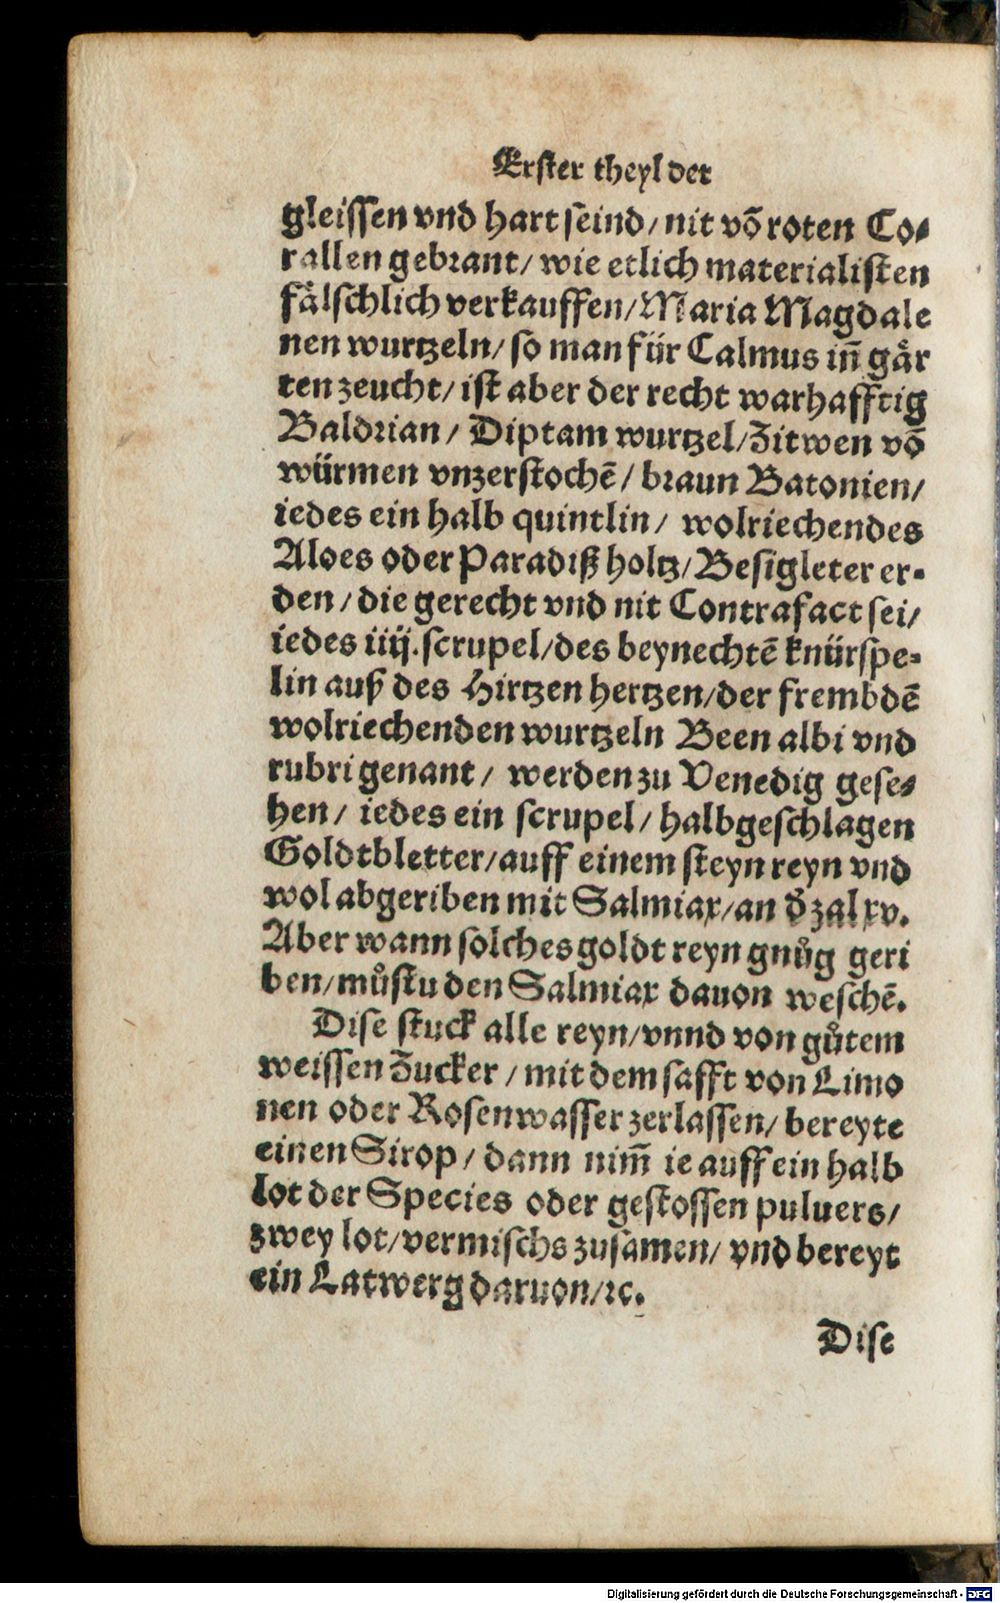 Erster theyl der
gleissen vnd hart seind/ nit võ roten Co⸗
rallen gebrant/ wie etlich materialisten
fälschlich verkauffen/ Maria Magdale
nen wurtzeln/ so man für Calmus iñ går
ten zeucht/ ist aber der recht warhafftig
Baldrian/ Diptam wurtzel/ Zitwen võ
würmen vnzerstochẽ/ braun Batonien/
iedes ein halb quintlin/ wolriechendes
Aloes oder Paradiß holtz/ Besigleter er⸗
den/ die gerecht vnd nit Contrafact sei/
iedes iiij. scrupel/ des beynechtẽ knürspe⸗
lin auß des Hirtzen hertzen/ der frembdẽ
wolriechenden wurtzeln Been albi vnd
rubri genant/ werden zu Venedig gese⸗
hen/ iedes ein scrupel/ halbgeschlagen
Goldtbletter/ auff einem steyn reyn vnd
wol abgeriben mit Salmiax/ an d̕ zal xv.
Aber wann solches goldt reyn gnůg geri
ben/ můstu den Salmiax dauon weschẽ.
Dise stuck alle reyn/ vnnd von gůtem
weissen Zucker/ mit dem safft von Limo
nen oder Rosenwasser zerlassen/ bereyte
einen Sirop/ dann nim̃ ie auff ein halb
lot der Species oder gestossen puluers/
zwey lot/ vermischs zusamen/ vnd bereyt
ein Latwerg daruon/ ꝛc.
Dise
Digitalisierung gefördert durch die Deutsche Forschungsgemeinschaft - DFG